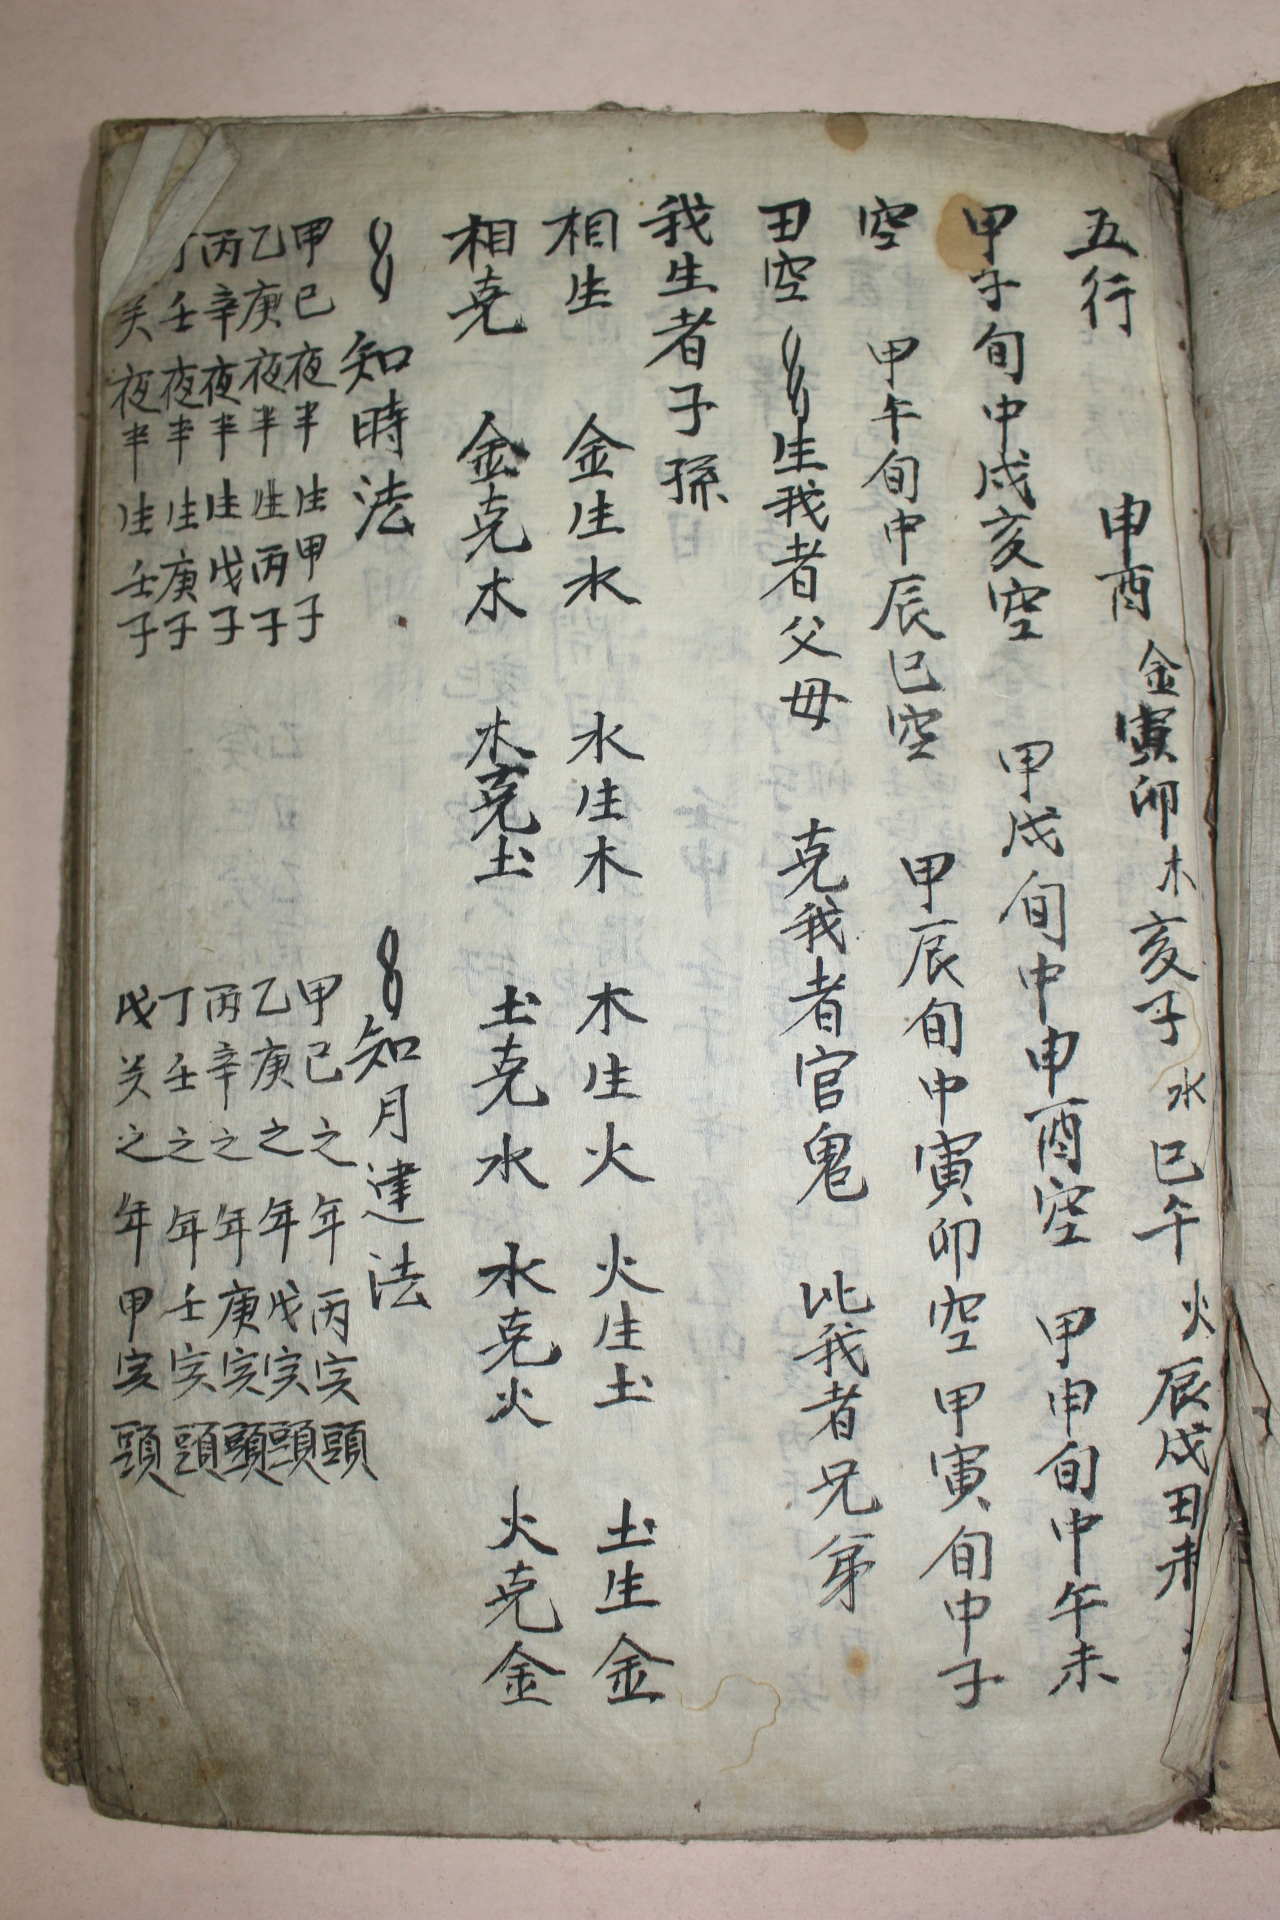 五行 申酉金寅卯木亥子水巳午火辰戌田未
甲子旬中戌亥空 甲戌旬中申酉空 甲申旬中午未
空 甲午旬中辰巳空 甲辰旬中寅卯空 甲寅旬中子
田空 生我者父母 克我者官鬼 比我者兄弟
我生者子孫
相生 金生水 水生木 木生火 火生土 土生金
相克 金克木 木克土 土克水 水克火 火克金
知時法 知月建法
甲己夜半生甲子 甲己之年丙寅頭
乙庚夜半生丙子 乙庚之年戊寅頭
丙辛夜半生戊子 丙辛之年庚寅頭
丁壬夜半生庚子 丁壬之年壬寅頭
癸夜半生壬子 戊癸之年甲寅頭